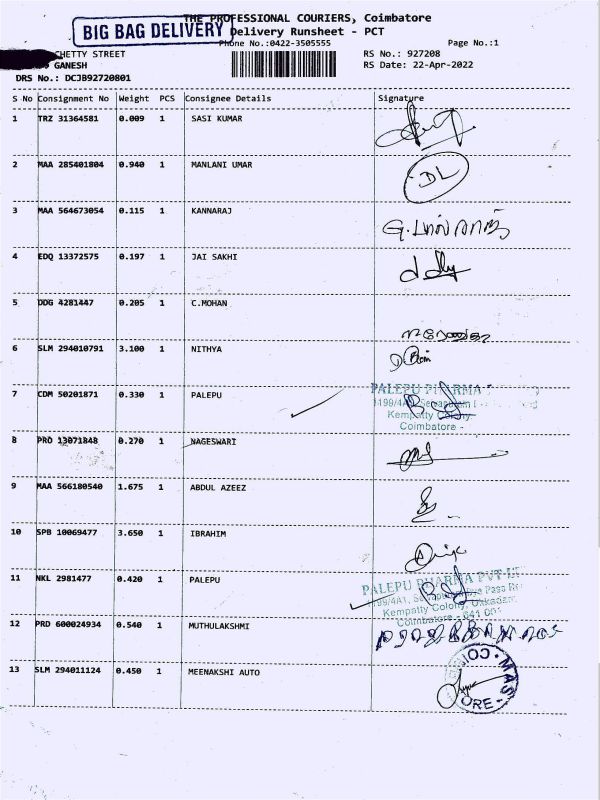 THE PROFESSIONAL COURIERS, Coimbatore
BIG BAG DELIVERY
Delivery Runsheet - PCT
Phone No.:0422-3505555
Page No.:1
CHETTY STREET
RS No.: 927208
GANESH
RS Date: 22-Apr-2022
DRS No.: DCJB92720801
S No Consignment No Weight PCS Consignee Details Signature
1 TRZ 31364581 0.009 1 SASI KUMAR
2 MAA 285401804 0.940 1 MANLANI UMAR DL
3 MAA 564673054 0.115 1 KANNARAJ
4 EDQ 13372575 0.197 1 JAI SAKHI
5 DDG 4281447 0.205 1 C.MOHAN
6 SLM 294010791 3.100 1 NITHYA
7 CDM 50201871 0.330 1 PALEPU
PALEPU PHARMA
Kempatty Colony
Coimbatore -
8 PRO 13071848 0.270 1 NAGESWARI
9 MAA 566180540 1.675 1 ABDUL AZEEZ
10 SPB 10069477 3.650 1 IBRAHIM
11 NKL 2981477 0.420 1 PALEPU
PALEPU PHARMA PVT
Kempatty Colony, Ukkadam
Coimbatore - 641 001
12 PRD 600024934 0.540 1 MUTHULAKSHMI
13 SLM 294011124 0.450 1 MEENAKSHI AUTO